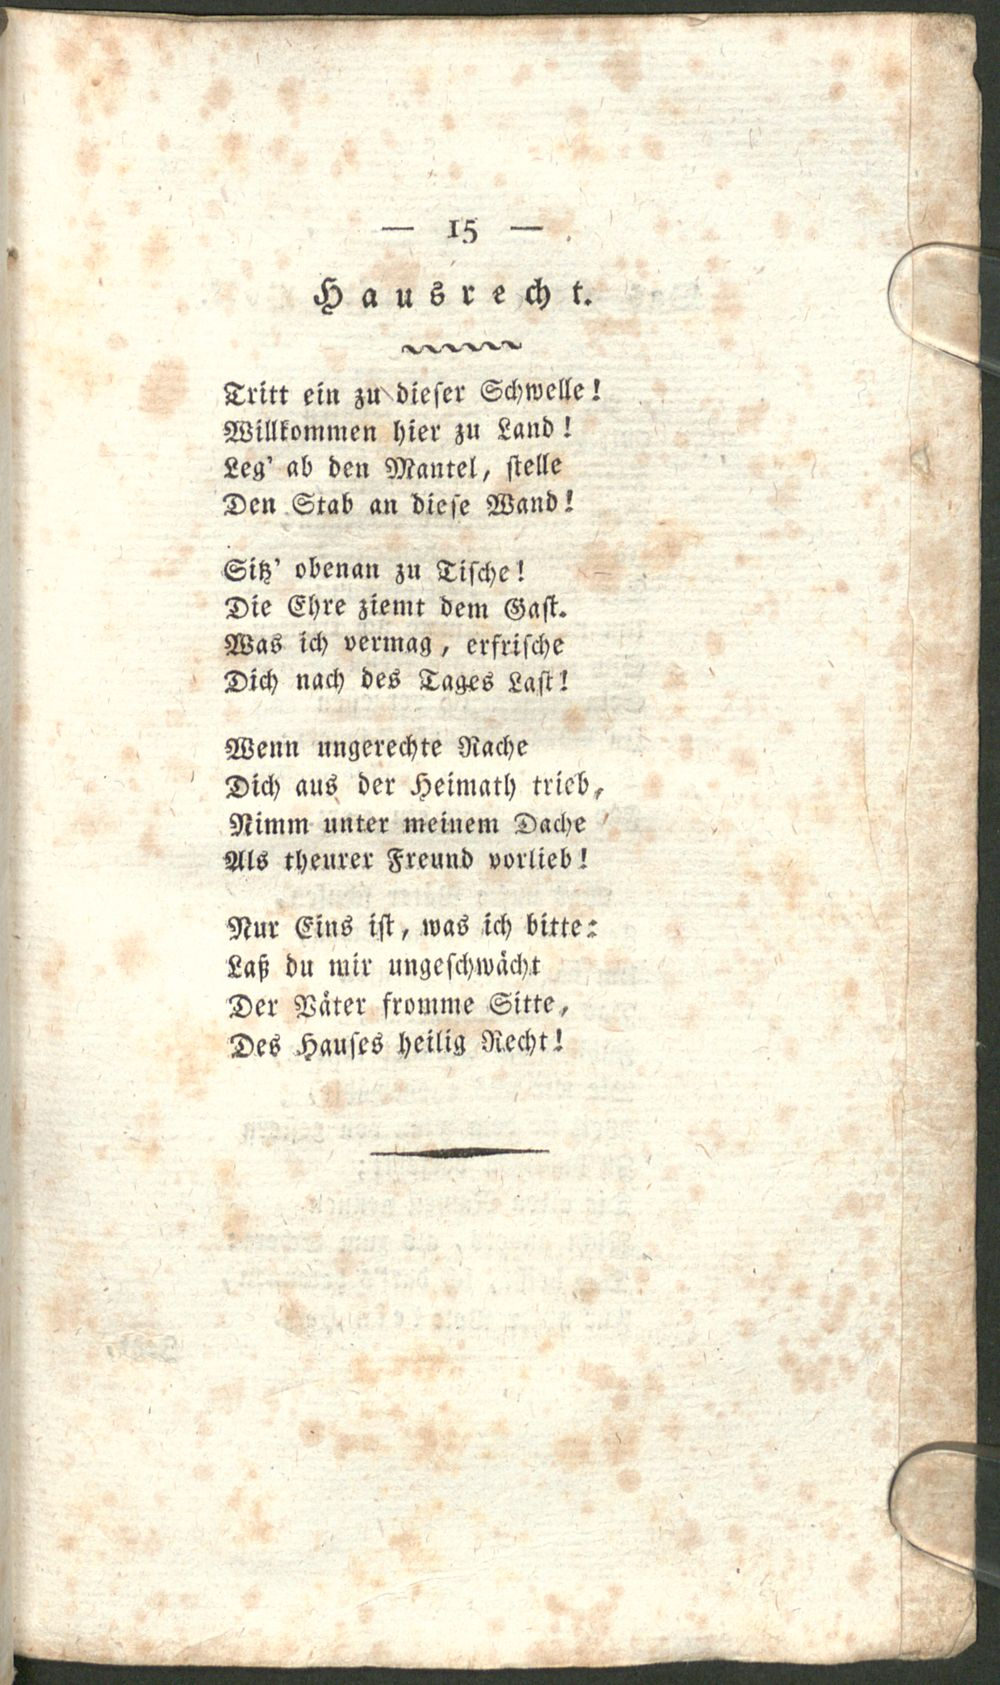 — 15 —
Hausrecht.
Tritt ein zu dieser Schwelle!
Willkommen hier zu Land!
Leg' ab den Mantel, stelle
Den Stab an diese Wand!
Sitz' obenan zu Tische!
Die Ehre ziemt dem Gast.
Was ich vermag, erfrische
Dich nach des Tages Last!
Wenn ungerechte Rache
Dich aus der Heimath trieb,
Nimm unter meinem Dache
Als theurer Freund vorlieb!
Nur Eins ist, was ich bitte:
Laß du mir ungeschwächt
Der Väter fromme Sitte,
Des Hauses heilig Recht!